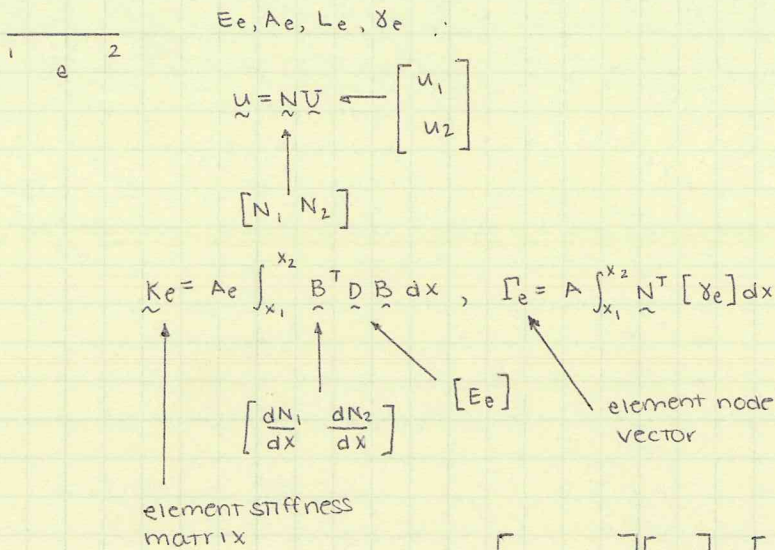 E_e, A_e, L_e, γ_e :
1 2
e
u = N U ← [u_1
u_2]
[N_1 N_2]
K_e = A_e ∫_{x_1}^{x_2} B^T D B dx , Γ_e = A ∫_{x_1}^{x_2} N^T [γ_e] dx
[E_e]
[dN_1/dx dN_2/dx]
element node
vector
element stiffness
matrix